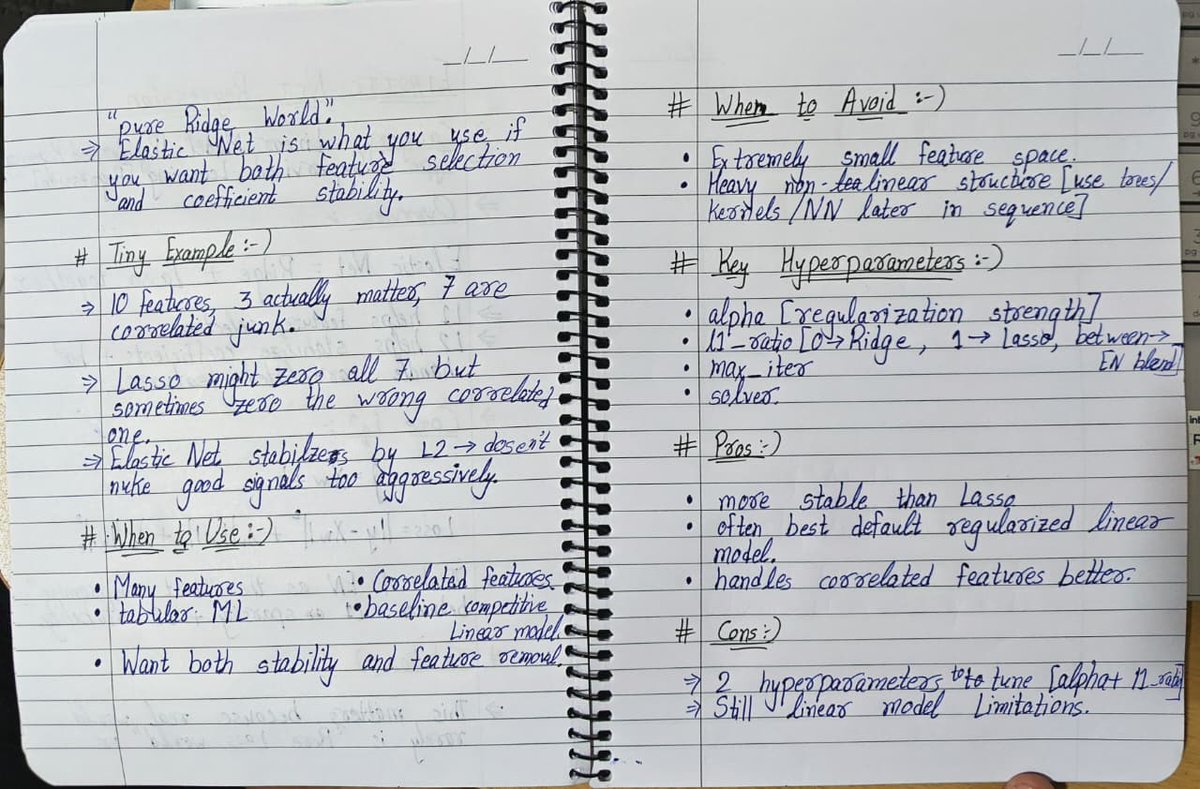 _/_/_
"pure Ridge World".
⇒ Elastic Net is what you use if
you want both feature selection
and coefficient stability.
# Tiny Example :-)
⇒ 10 features, 3 actually matter, 7 are
correlated junk.
⇒ Lasso might zero all 7. but
sometimes zero the wrong correlated
one.
⇒ Elastic Net stabilzes by L2 → dosen't
nuke good signals too aggressively.
# When to Use :-)
• Many features • Correlated features
• tabular ML • baseline competitive
Linear model.
• Want both stability and feature removal.
_/_/_
# When to Avoid :-)
• Extremely small feature space.
• Heavy non-linear structure [use trees/
Kernels/NN later in sequence]
# Key Hyperparameters :-)
• alpha [regularization strength]
• l1_ratio [0→Ridge, 1→ Lasso, between→
EN blend]
• max_iter
• solver.
# Pros :-)
• more stable than Lasso
• often best default regularized linear
model.
• handles correlated features better.
# Cons :-)
⇒ 2 hyperparameters to to tune [alpha+ l1_ratio]
⇒ Still linear model Limitations.